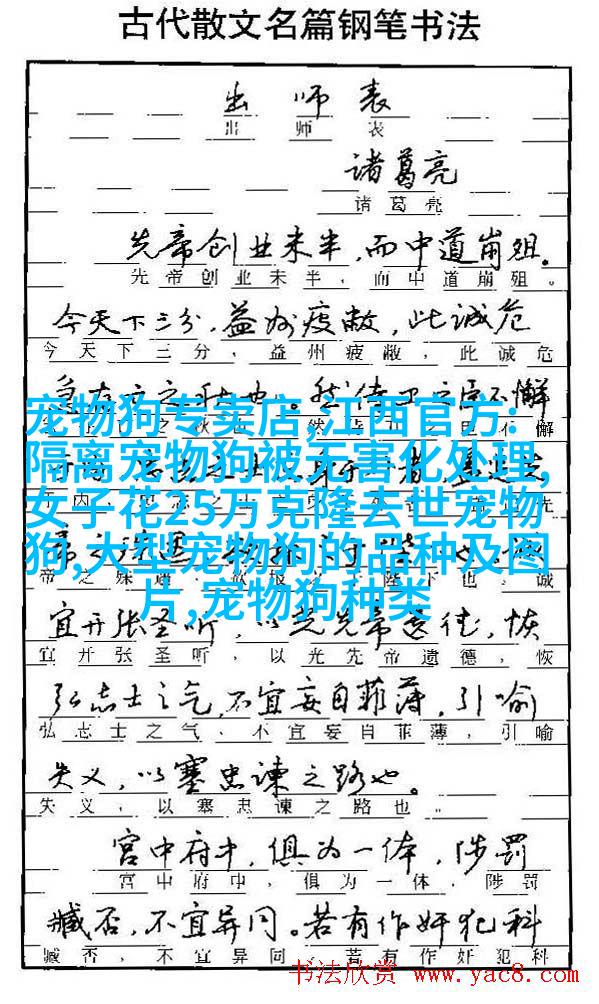 古代散文名篇钢笔书法
出 师 表
出 师 表
诸葛亮
诸 葛 亮
先帝创业未半，而中道崩殂。
先帝创业未半，而中道崩殂。
今天下三分，益州疲敝，此诚危
今天下三分，益州疲敝，此诚危
也。然侍卫之臣不懈
宠物狗专卖店,江西官方:
隔离宠物狗被无害化处理,
女子花25万克隆去世宠物
狗,大型宠物狗的品种及图
片,宠物狗种类
宜开张圣听，以光先帝遗德，恢
宜开张圣听，以光先帝遗德，恢
弘志士之气，不宜妄自菲薄，引喻
弘志士之气，不宜妄自菲薄，引喻
失义，以塞忠谏之路也。
失义，以塞忠谏之路也。
宫中府中，俱为一体，陟罚
宫中府中，俱为一体，陟罚
臧否，不宜异同。若有作奸犯科
臧否，不宜异同。若有作奸犯科
书法欣赏 www.yac8.com